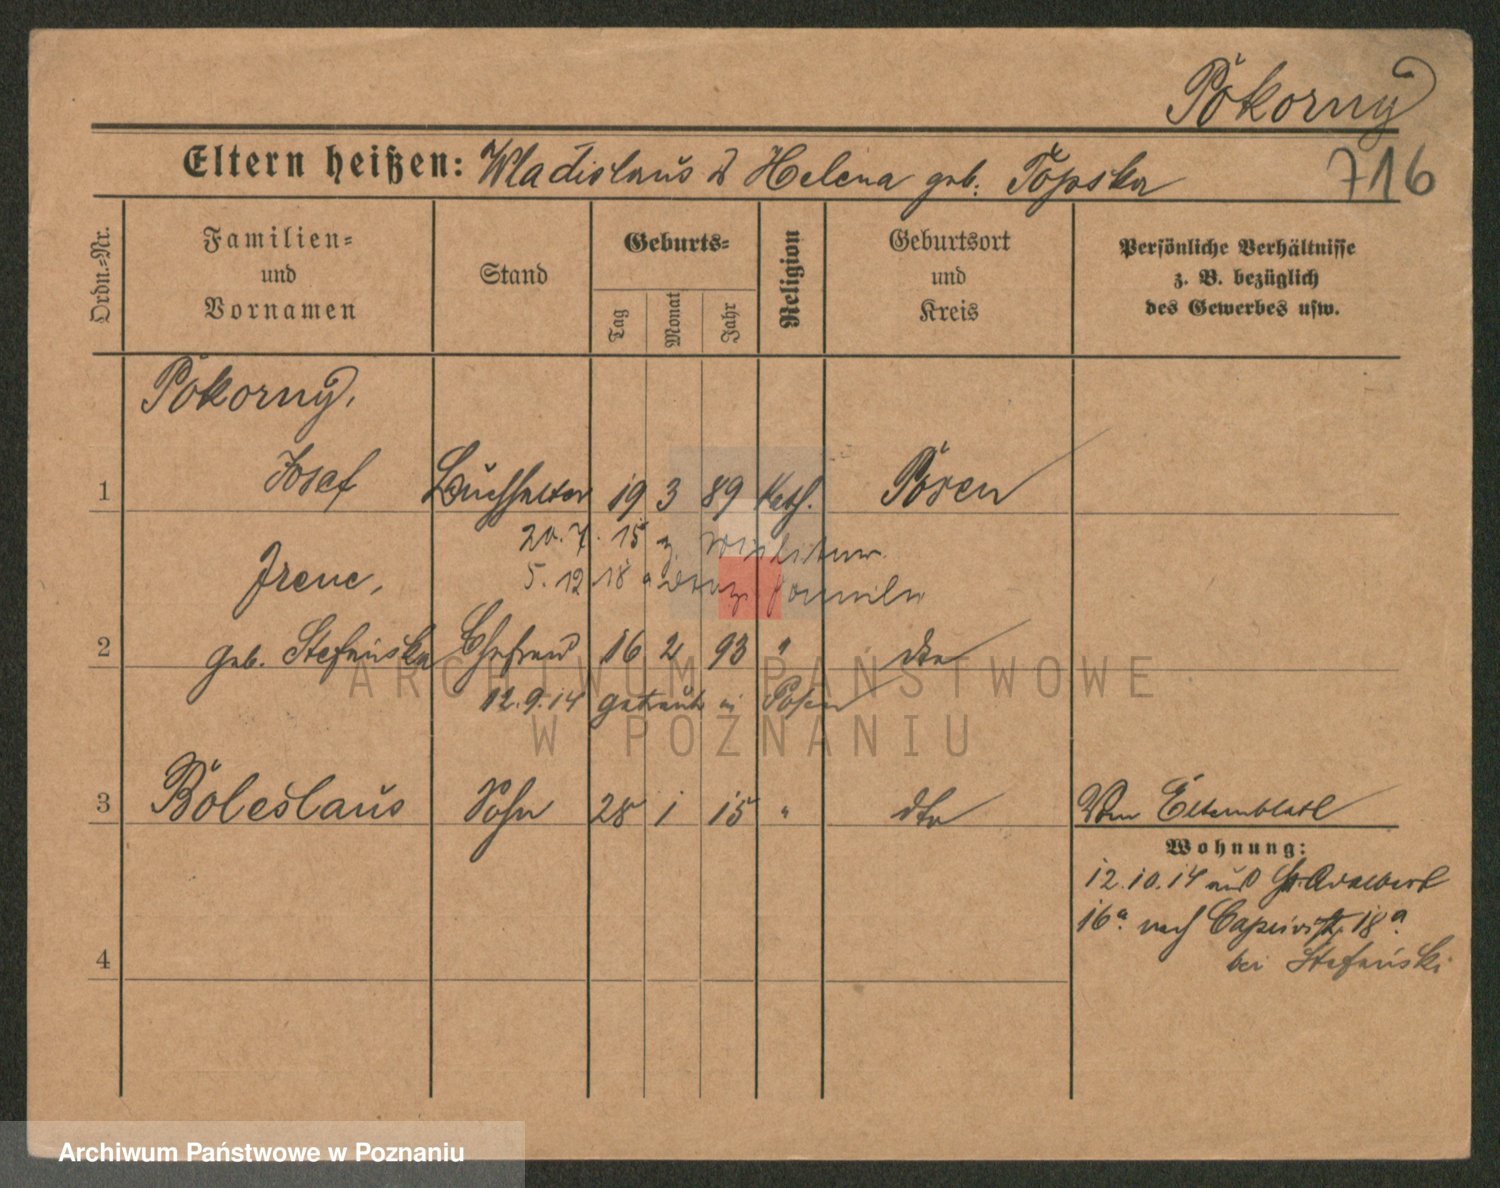 Pokorny
Eltern heißen: Wladislaus u Helena geb. Topska
716
Ordn.-Nr.
Familien- und Vornamen
Stand
Geburts-
Tag
Monat
Jahr
Religion
Geburtsort und Kreis
Persönliche Verhältnisse
z. B. bezüglich
des Gewerbes usw.
Pokorny,
1 Josef Buchhalter 19 3 89 kath. Posen
20. 7. 15 z.
5. 12 18
Irene,
2 geb. Stefańska Ehefrau 16 2 93 " dto
12.9.14 getraut in Posen
3 Boleslaus Sohn 28 1 15 " dto
Vom Elternblatt
Wohnung:
12.10.14 aus St. Adalbert
16a. nach Caprivistr. 18a.
bei Stefański
4
ARCHIWUM PAŃSTWOWE
W POZNANIU
Archiwum Państwowe w Poznaniu